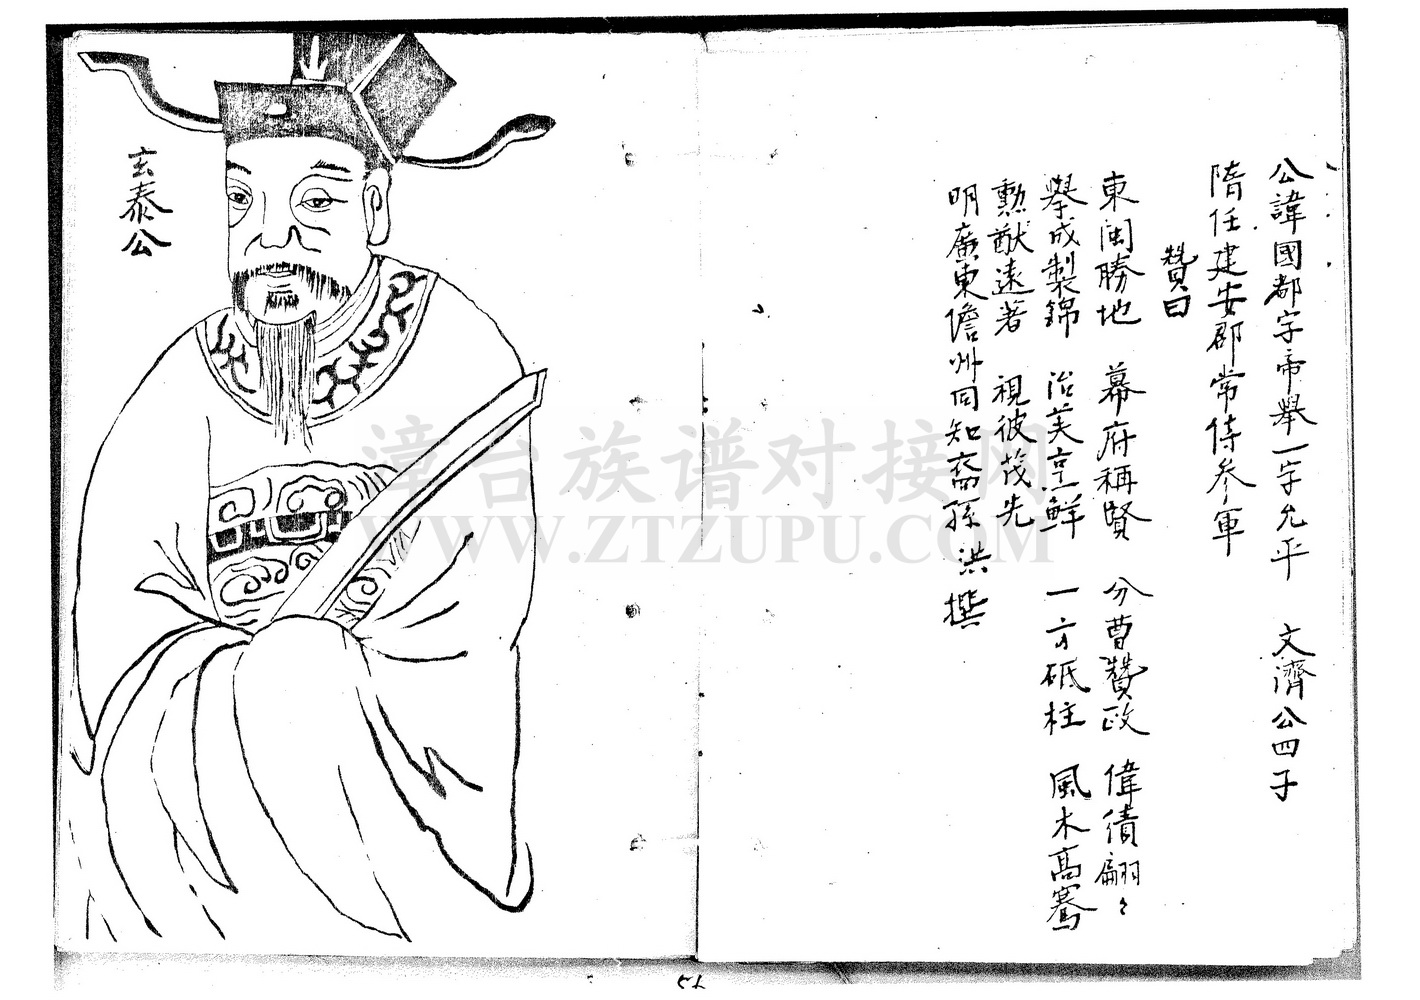 公諱國都字帝舉一字允平 文濟公四子
隋任建安郡常侍參軍
贊曰
東閩勝地 幕府稱賢 分曹贊政 偉績翩々
舉成製錦 治美烹鮮 一方砥柱 風木高騫
勲猷遠著 視彼茂先
明廣東儋州同知裔孫 洪 撰
玄泰公
漳台族谱对接网
WWW.ZTZUPU.COM